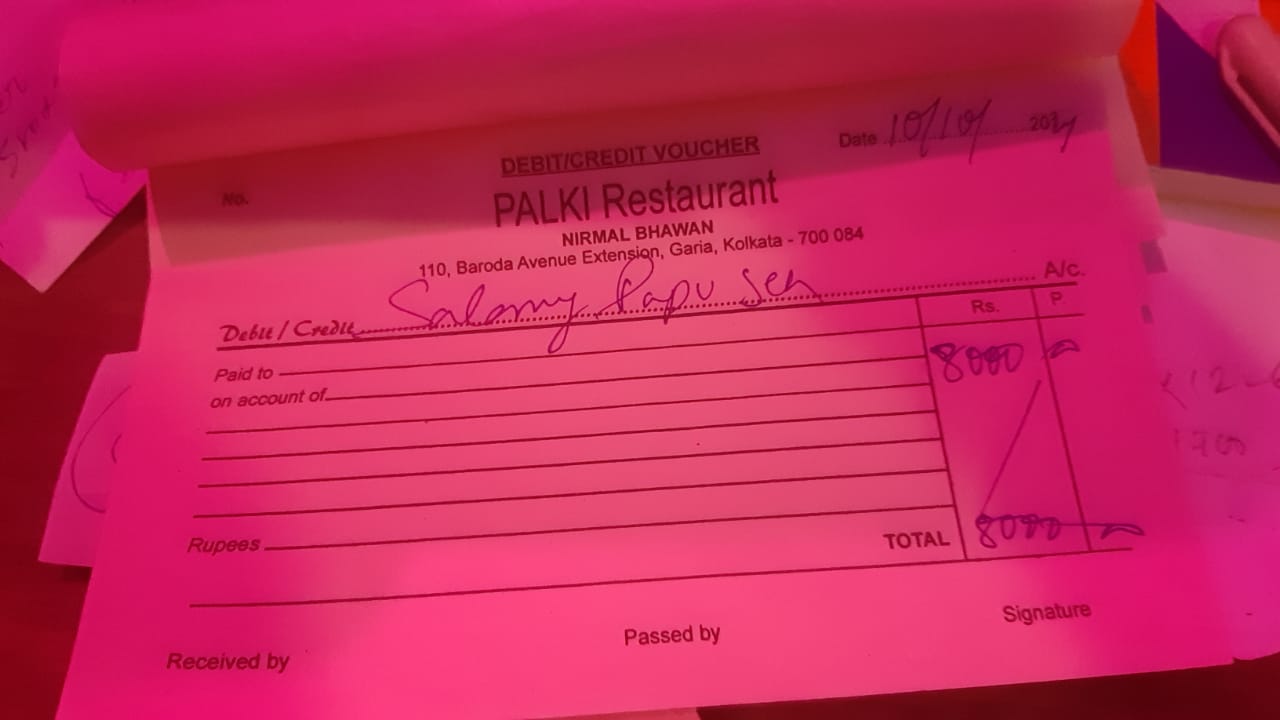 DEBIT/CREDIT VOUCHER
No.
Date 10/10/ 2024
PALKI Restaurant
NIRMAL BHAWAN
110, Baroda Avenue Extension, Garia, Kolkata - 700 084
Debit / Credit Salamy Papu Sen A/c.
Rs. P.
Paid to 8000
on account of
Rupees
TOTAL 8000
Received by
Passed by
Signature